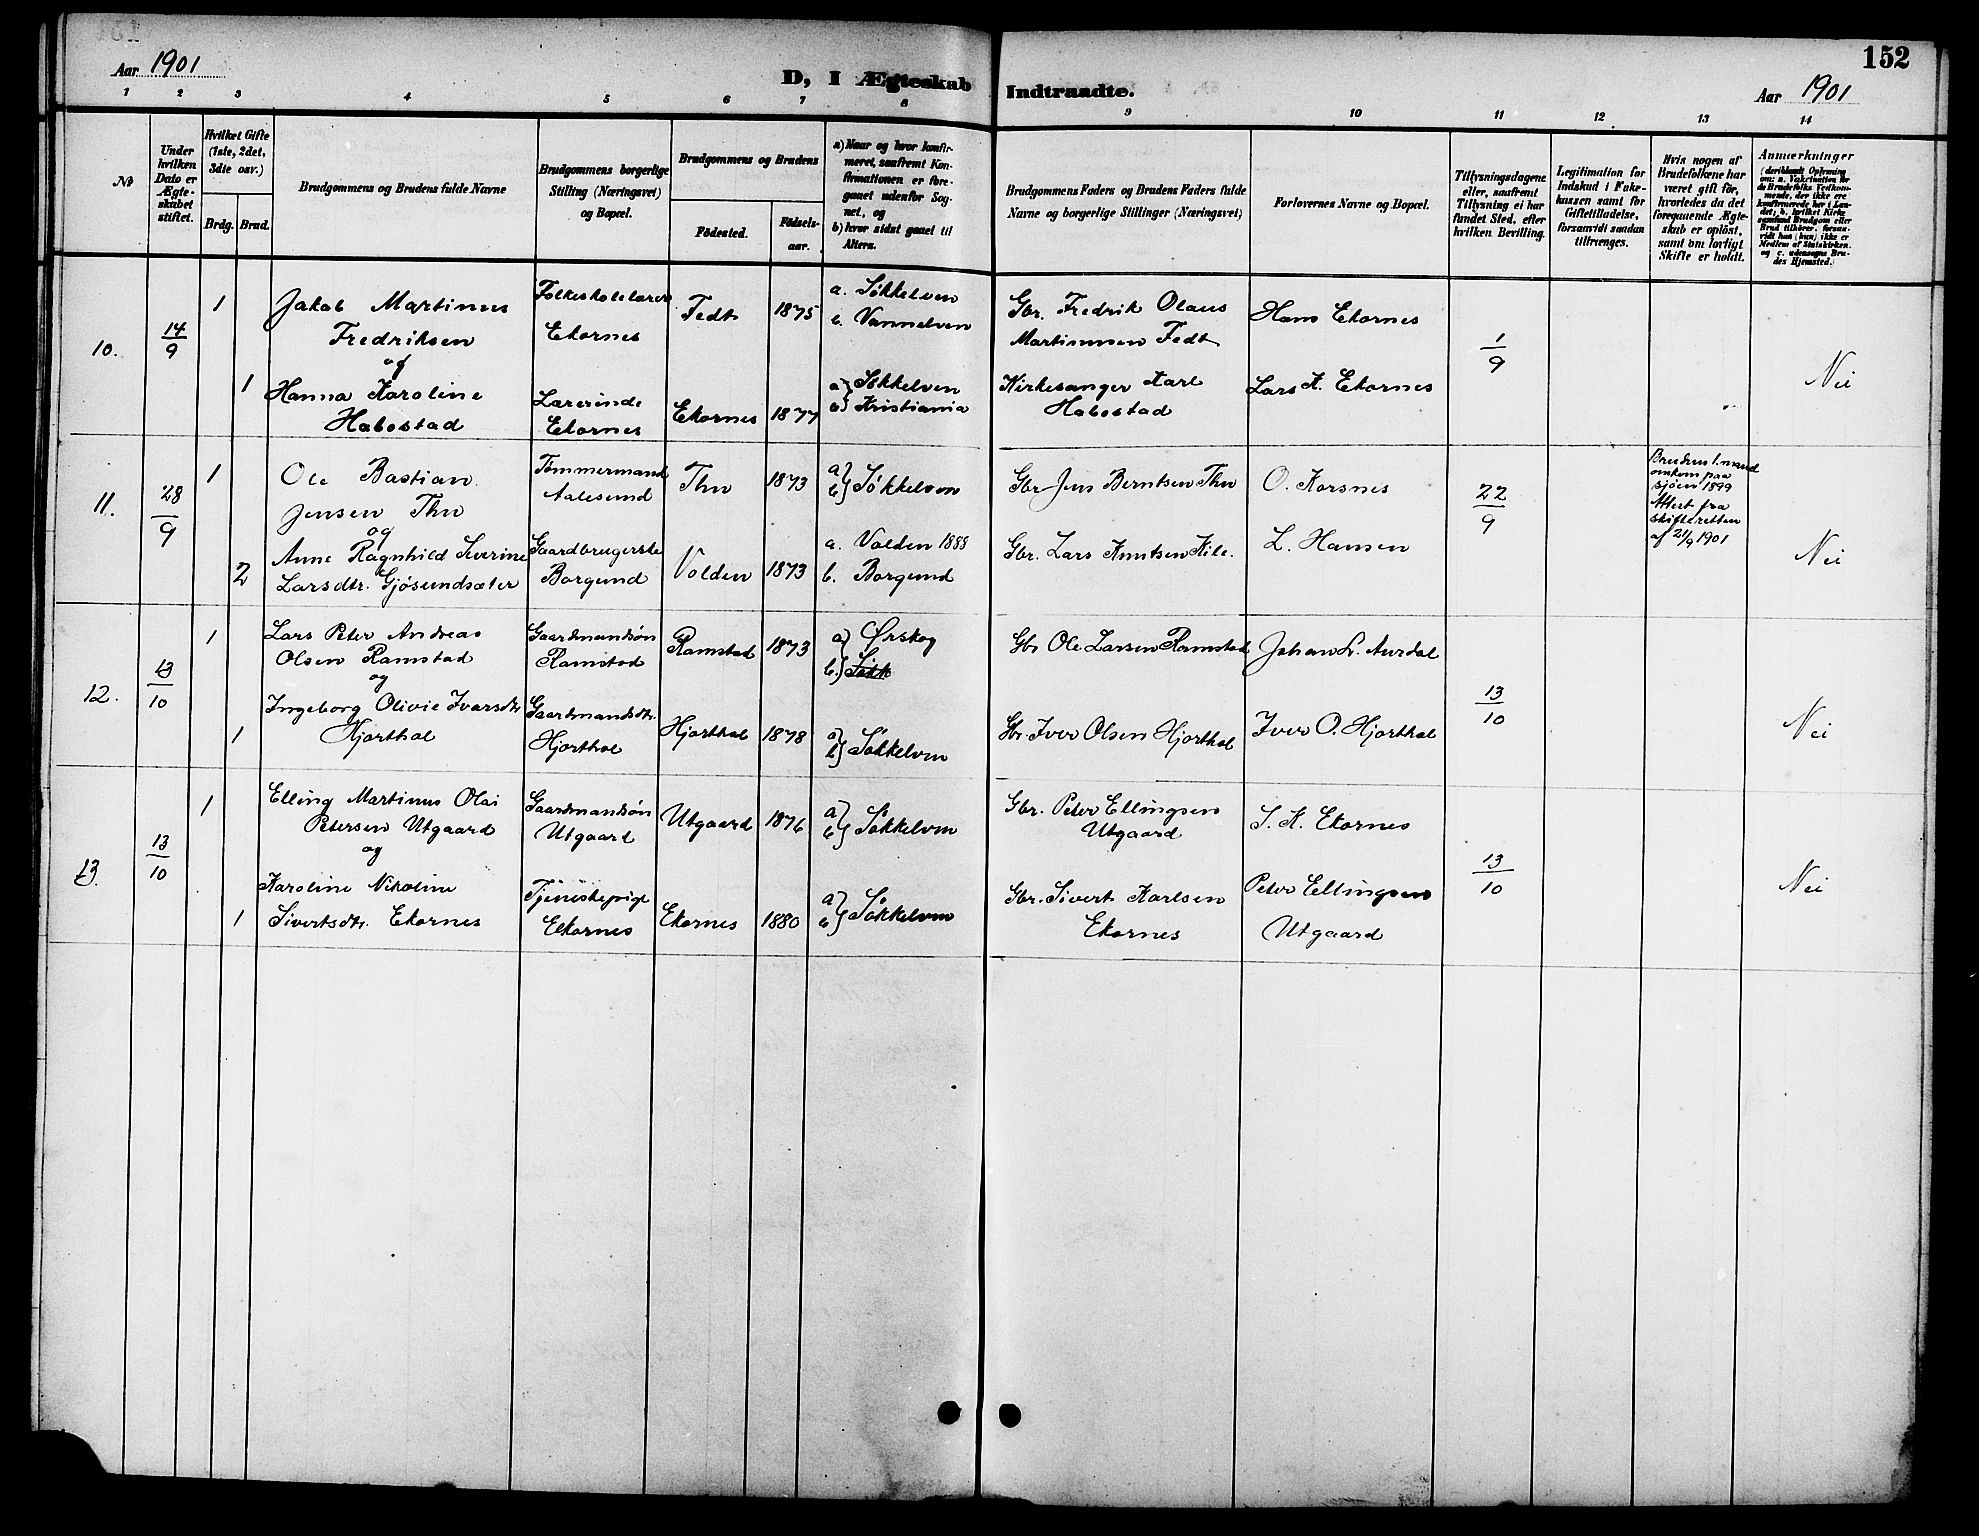 152
Aar 1901
D, I Ægteskab Indtraadte.
Aar 1901
1 2 3 4 5 6 7 8 9 10 11 12 13 14
№
Under hvilken Dato er Ægteskabet stiftet.
Hvilket Gifte (1ste, 2det, 3die osv.)
Brdg. Brud.
Brudgommens og Brudens fulde Navne
Brudgommens borgerlige Stilling (Næringsvei) og Bopæl.
Brudgommens og Brudens
Fødested.
Fødsels-aar.
a) Naar og hvor konfirmeret, saafremt Konfirmationen er foregaaet udenfor Sognet, og
b) hvor sidst gaaet til Alters.
Brudgommens Faders og Brudens Faders fulde Navne og borgerlige Stillinger (Næringsvei)
Forlovernes Navne og Bopæl.
Tillysningsdagene eller, saafremt Tillysning ei har fundet Sted, efter hvilken Bevilling.
Legitimation for Indskud i Fakkassen samt for Giftetilladelse, forsaavidt saadan tiltrænges.
Hvis nogen af Brudefolkene har været gift før, hvorledes da det foregaaende Ægteskab er opløst, samt om lovligt Skifte er holdt.
Anmærkninger
10.
14/9
1
Jakob Martinus
Fredriksen
og
1
Hanna Karoline
Habostad
Folkeskolelærer
Ekornes
Lærerinde
Ekornes
Fedt 1875
Ekornes 1877
a. Søkkelven
b. Vannelven
a) Søkkelven
b) Kristiania
Gbr. Fredrik Olaus
Martinusen Fedt
Kirkesanger Karl
Habostad
Hans Ekornes
Lars K. Ekornes
1/9
Nei
11.
28/9
1
Ole Bastian
Jensen Thu
og
2
Anne Ragnhild Severine
Larsdtr. Gjøsundsæter
Tømmermand
Aalesund
Gaardbrugerske
Borgund
Thu 1873
Volden 1873
a) b) Søkkelven
a. Volden 1888
b. Borgund
Gbr Jens Berntsen Thu
Gbr. Lars Knutsen Kile.
O. Korsnes
L. Hansen
22/9
Brudens 1. mand
omkom paa
sjøen 1899
Attest fra
skifteretten
af 20/9 1901
Nei
12.
13/10
1
Lars Peter Andreas
Olsen Ramstad
og
Ingeborg Olivie Ivarsdtr
1
Hjorthol
Gaardmandsøn
Ramstad
Gaardmandsdtr.
Hjorthol
Ramstad 1873
Hjorthol 1878
a) Ørskog
b.) Søkk
a) b) Søkkelven
Gbr Ole Larsen Ramstad
Gbr. Iver Olsen Hjorthol
Johan L. Aurdal
Iver O. Hjorthol
13/10
Nei
13.
13/10
1
Elling Martinus Olai
Petersen Utgaard
og
Karoline Nikoline
1
Sivertsdtr. Ekornes
Gaardmandsøn
Utgaard
Tjenestepige
Ekornes
Utgaard 1876
Ekornes 1880
a) b) Søkkelven
a) b) Søkkelven
Gbr. Peter Ellingsen
Utgaard
Gbr. Sivert Karlsen
Ekornes
S. K. Ekornes
Peter Ellingsen
Utgaard
13/10
Nei